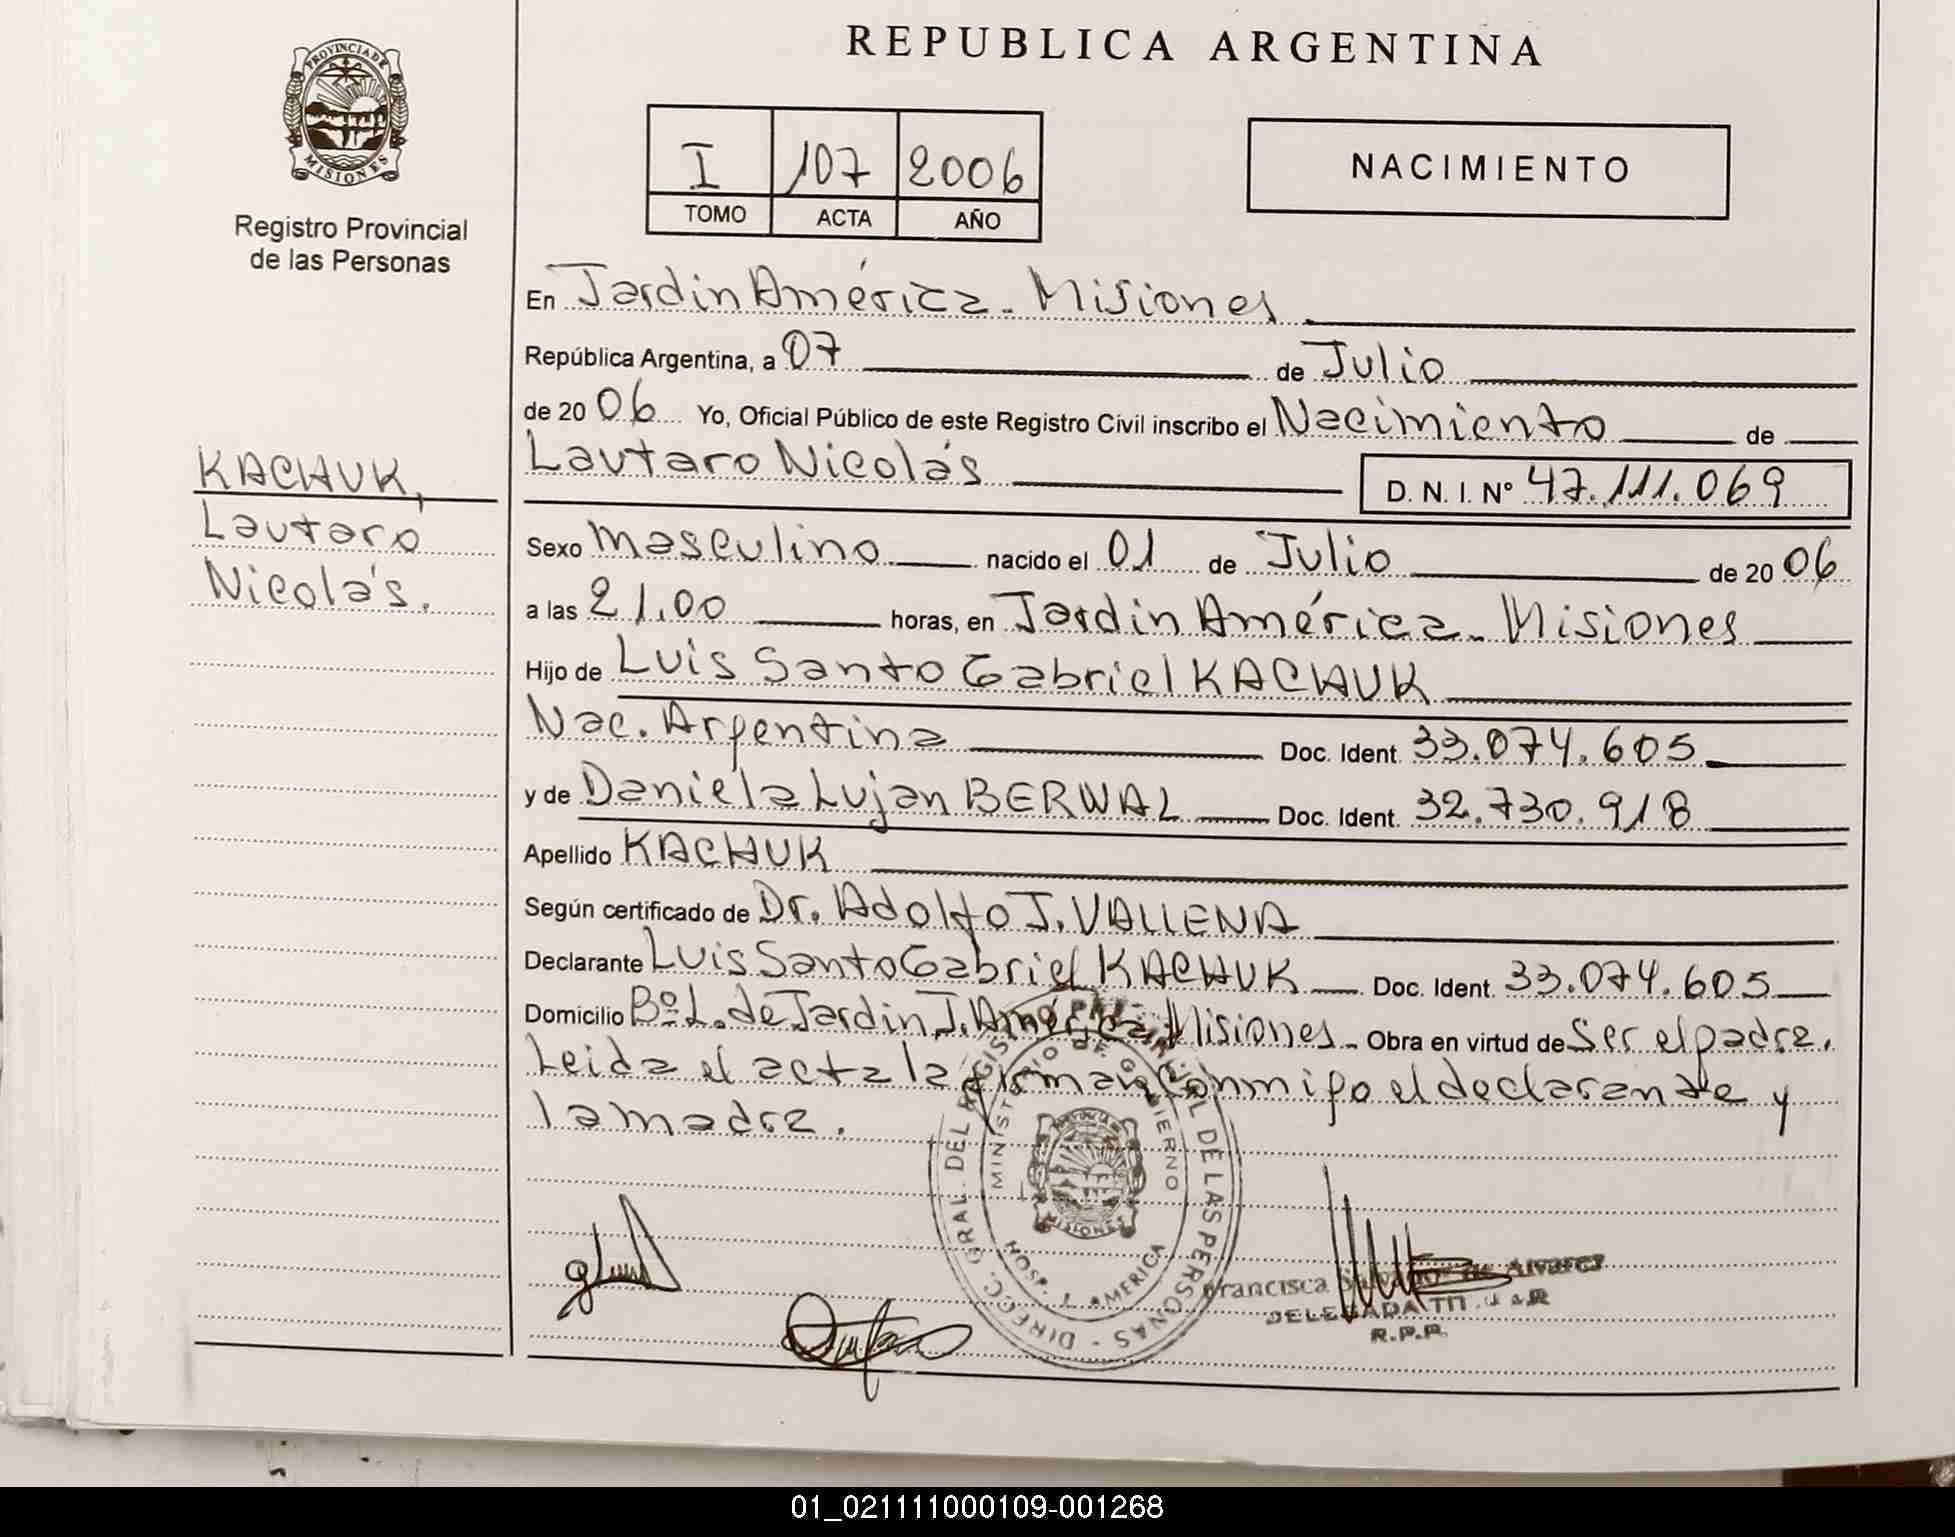 PROVINCIA DE
MISIONES
Registro Provincial
de las Personas
REPUBLICA ARGENTINA
I 107 2006
TOMO ACTA AÑO
NACIMIENTO
KACHUK,
Lautaro
Nicolás.
En Jardin América - Misiones
República Argentina, a 07 de Julio
de 20 06 Yo, Oficial Público de este Registro Civil inscribo el Nacimiento de
Lautaro Nicolás D. N. I. Nº 47.111.069
Sexo masculino nacido el 01 de Julio de 20 06
a las 21.00 horas, en Jardin América - Misiones
Hijo de Luis Santo Gabriel KACHUK
Nac. Argentina Doc. Ident. 33.074.605
y de Daniela Lujan BERWAL Doc. Ident. 32.730.918
Apellido KACHUK
Según certificado de Dr. Adolfo J. VALLENA
Declarante Luis Santo Gabriel KACHUK Doc. Ident. 33.074.605
Domicilio Bº L. de Jardin J. América Misiones - Obra en virtud de Ser el padre.
Leida el acta la firman conmigo el declarante y
la madre.
DIRECC. GRAL. DEL REGISTRO PROVINCIAL DE LAS PERSONAS
MINISTERIO DE GOBIERNO
HOSP. J. AMERICA
MISIONES
Francisca de Alvarez
DELEGADA TITULAR
R.P.P.
01_021111000109-001268